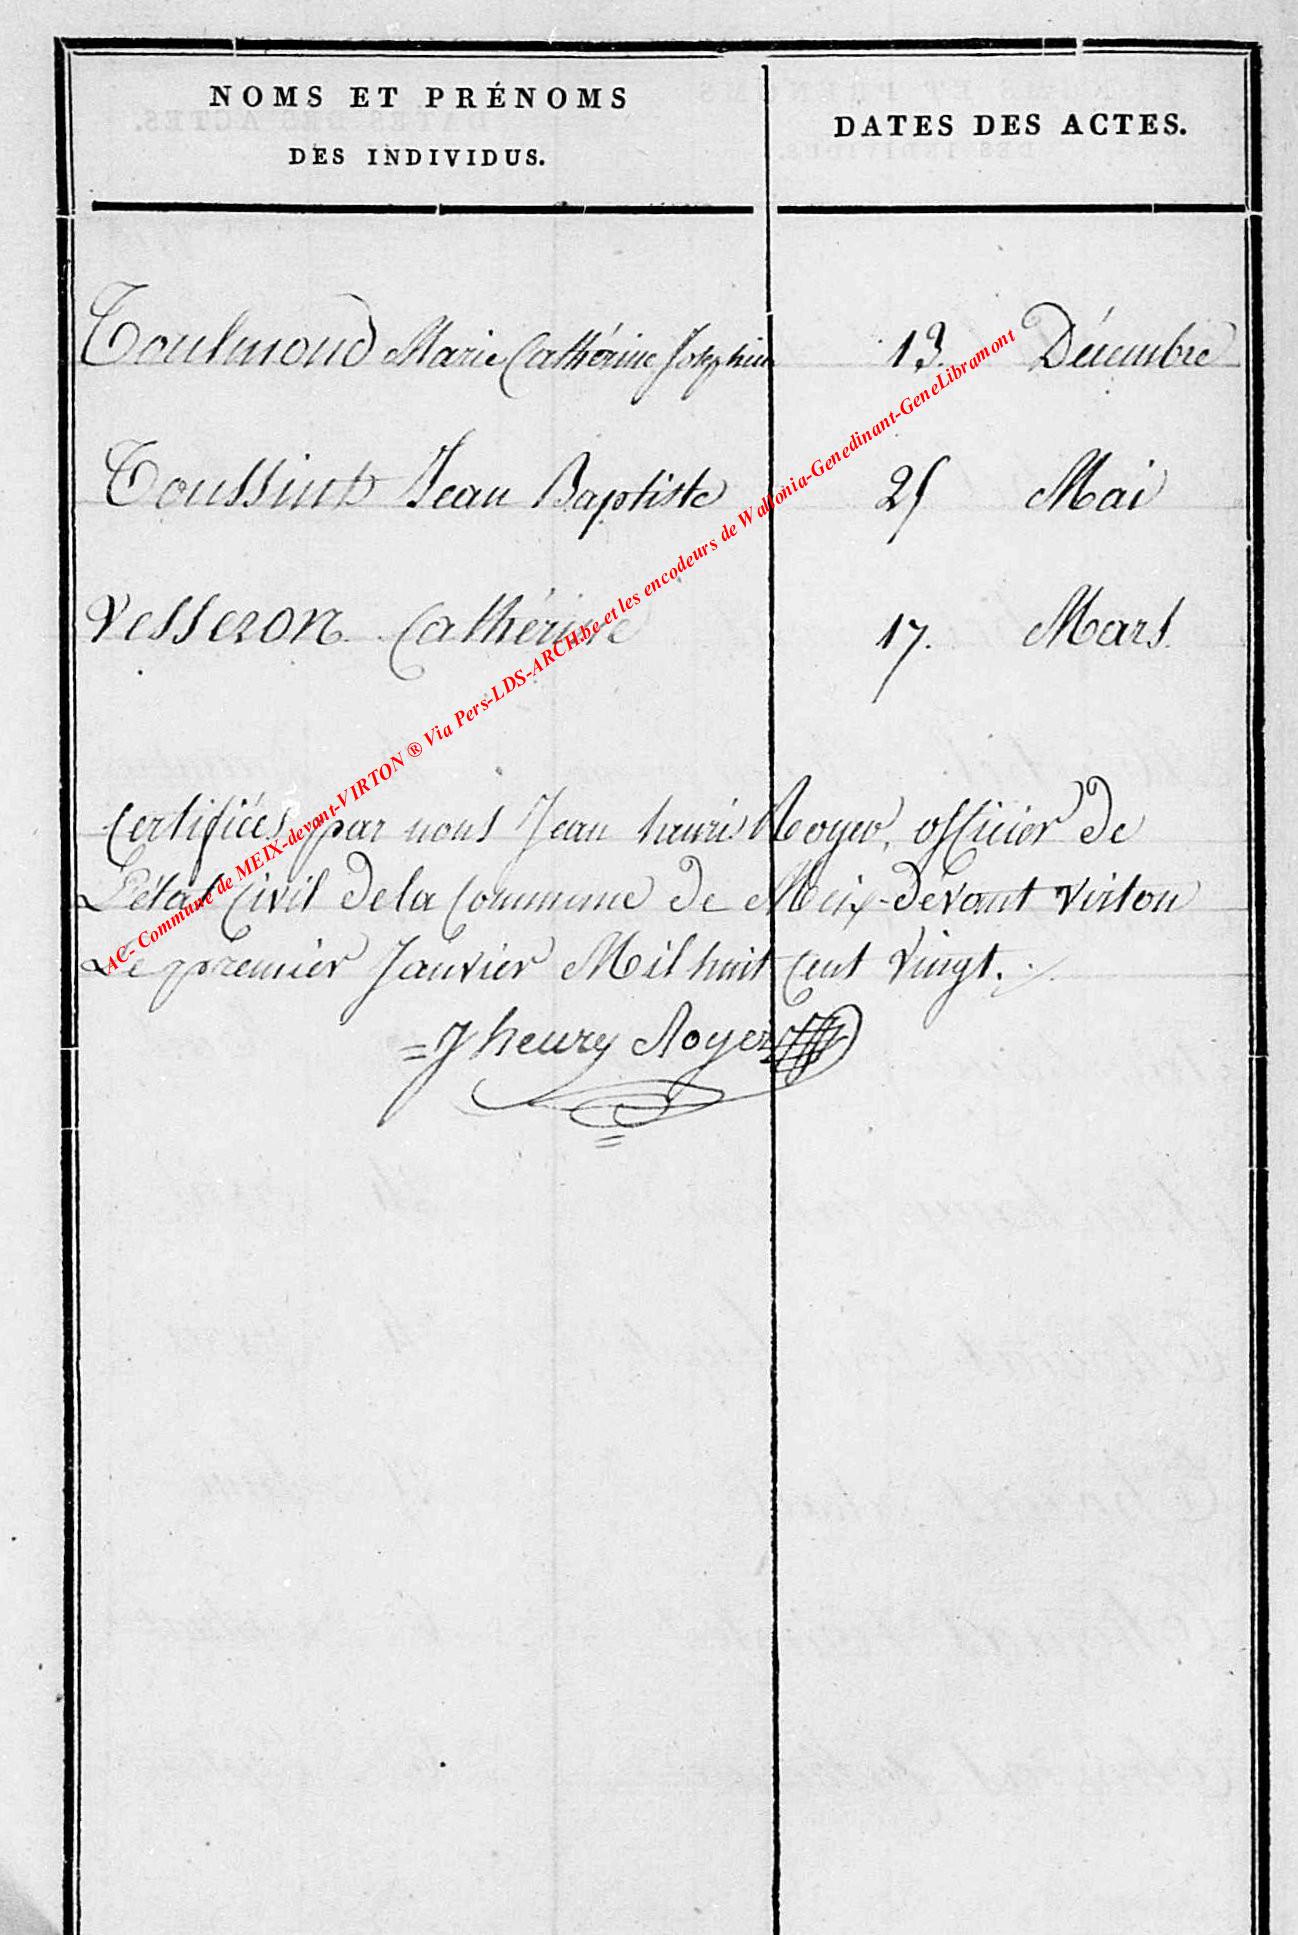 NOMS ET PRÉNOMS
DES INDIVIDUS.
DATES DES ACTES.
Toulmond Marie Cathérine Josephine 13. Décembre
Toussint Jean Baptiste 25 Mai
Vesseron Cathérine 17. Mars.
Certifiées par nous Jean henri Royer, officier de
L'état Civil de la Commune de Meix-devant virton
Le premier Janvier Mil huit Cent Vingt.
J henry Royer
AC- Commune de MEIX-devant-VIRTON ® Via Pers-LDS-ARCH.be et les encodeurs de Wallonia-Genedinant-GeneLibramont